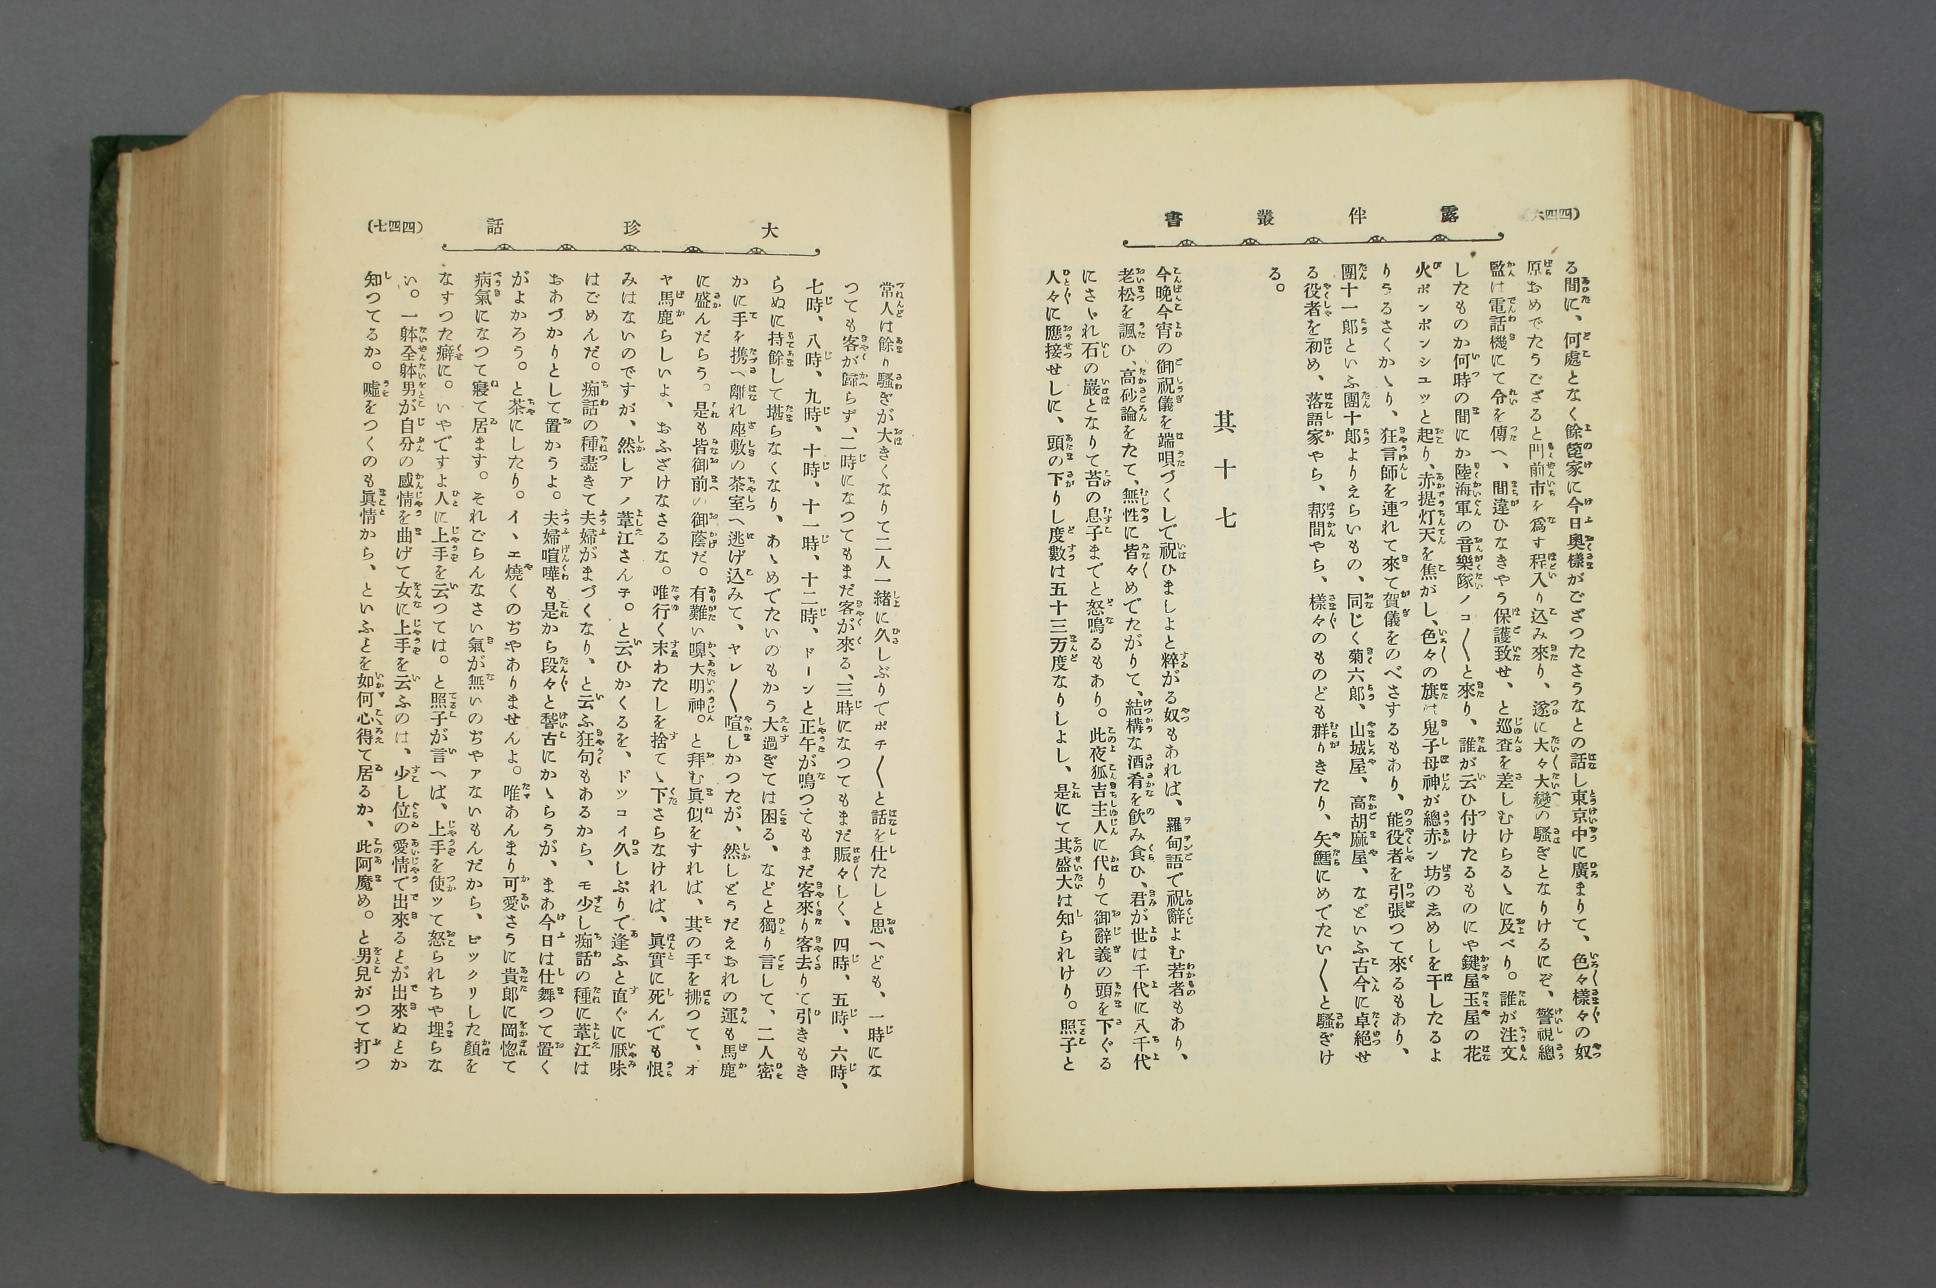 (四四六)
露伴叢書
る間に、何處となく餘箆家に今日奥樣がござつたさうなとの話し東京中に廣まりて、色々樣々の奴
原おめでたうござると門前市を爲す程入り込み來り、遂に大々大變の騷ぎとなりけるにぞ、警視總
監は電話機にて令を傳へ、間違ひなきやう保護致せ、と巡査を差しむけらるゝに及べり。誰が注文
したものか何時の間にか陸海軍の音樂隊ノコ〳〵と來り、誰が云ひ付けたるものにや鍵屋玉屋の花
火ポンポンシユッと起り、赤提灯天を焦がし、色々の旗は鬼子母神が總赤ン坊のゐめしを干したるよ
りうるさくかゝり、狂言師を連れて來て賀儀をのべさするもあり、能役者を引張つて來るもあり、
團十一郎といふ團十郎よりえらいもの、同じく菊六郎、山城屋、高胡麻屋、などいふ古今に卓絶せ
る役者を初め、落語家やら、幇間やら、樣々のものども群りきたり、矢鱈にめでたい〳〵と騷ぎけ
る。
其十七
今晩今宵の御祝儀を端唄づくしで祝ひましよと粹がる奴もあれば、羅甸語で祝辭よむ若者もあり、
老松を諷ひ、高砂論をたて、無性に皆々めでたがりて、結構な酒肴を飲み食ひ、君が世は千代に八千代
にさゞれ石の巖となりて苔の息子までと怒鳴るもあり。此夜狐吉主人に代りて御辭義の頭を下ぐる
人々に應接せしに、頭の下りし度數は五十三万度なりしよし、是にて其盛大は知られけり。照子と
大珍話
(四四七)
常人は餘り騷ぎが大きくなりて二人一緒に久しぶりてポチ〳〵と話を仕たしと思へども、一時にな
つても客が歸らず、二時になつてもまだ客が來る、三時になつてもまだ賑々しく、四時、五時、六時、
七時、八時、九時、十時、十一時、十二時、ドーンと正午が鳴つてもまだ客來り客去りて引きもき
らぬに持餘して堪らなくなり、あゝめでたいのもかう大過ぎては困る、などと獨り言して、二人密
かに手を携へ離れ座敷の茶室へ逃げ込みて、ヤレ〳〵喧しかつたが、然しどうだえおれの運も馬鹿
に盛んだらう。是も皆御前の御蔭だ。有難い嗅大明神。と拜む眞似をすれば、其の手を拂つて、オ
ヤ馬鹿らしいよ、おふざけなさるな。唯行く末わたしを捨てゝ下さらなければ、眞實に死んでも恨
みはないのですが、然しアノ葦江さんチ。と云ひかくるを、ドッコイ久しぶりで逢ふと直ぐに厭味
はごめんだ。痴話の種盡きて夫婦がまづくなり、と云ふ狂句もあるから、モ少し痴話の種に葦江は
おあづかりとして置かうよ。夫婦喧嘩も是から段々と稽古にかゝらうが、まあ今日は仕舞つて置く
がよかろう。と茶にしたり。イ、エ燒くのぢやありませんよ。唯あんまり可愛さうに貴郎に岡惚て
病氣になつて寢て居ます。それごらんなさい氣が無いのぢやァないもんだから、ビックリした顏を
なすつた癖に。いやですよ人に上手を云つては。と照子が言へば、上手を使ッて怒られちや埋らな
い。一躰全躰男が自分の感情を曲げて女に上手を云ふのは、少し位の愛情で出來るとが出來ぬとか
知つてるか。嘘をつくのも眞情から、といふとを如何心得て居るか、此阿魔め。と男兒がつて打つ